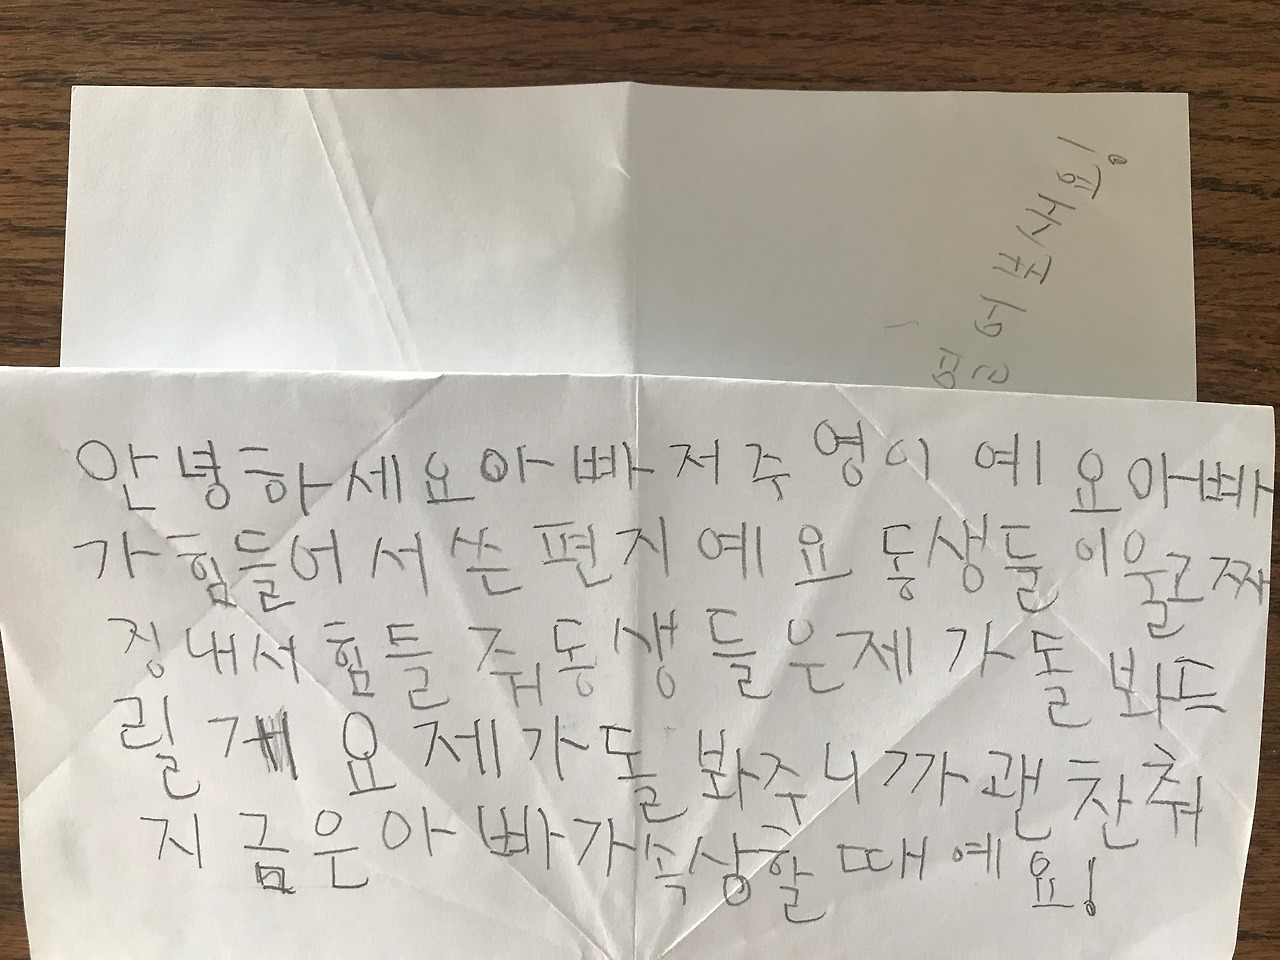 열어보세요!
안녕하세요아빠저주영이예요아빠
가힘들어서쓴편지예요동생들이울고짜
징내서힘들줘동생들은제가돌봐드
릴게요제가돌봐주니까괜찬춰
지금은아빠가속상할때예요!